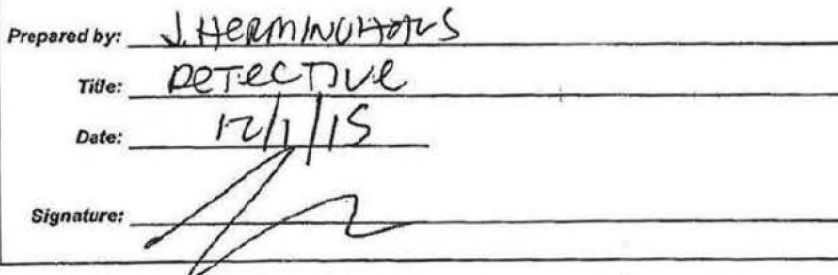 Prepared by: J. HERMINGHAUS
Title: DETECTIVE
Date: 12/1/15
Signature: